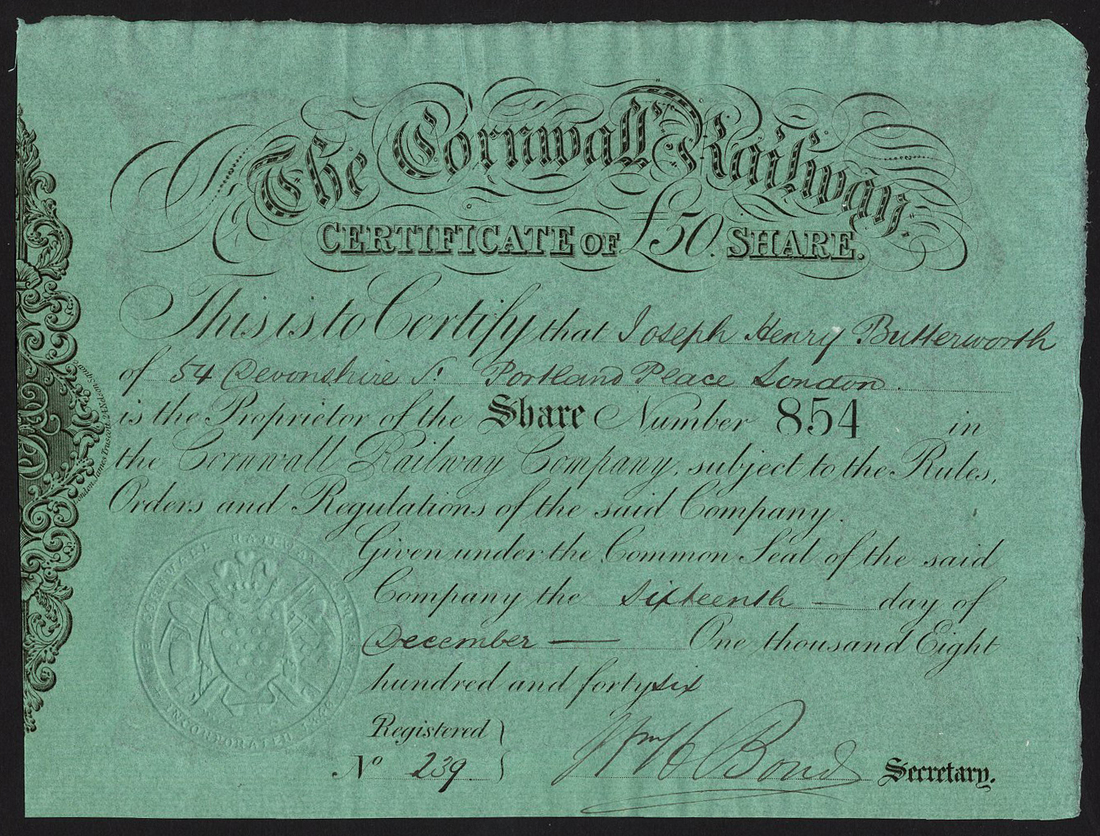 The Cornwall Railway.
CERTIFICATE OF £50. SHARE.
This is to Certify that Joseph Henry Butterworth
of 54 Devonshire St. Portland Place London.
is the Proprietor of the Share Number 854 in
the Cornwall Railway Company, subject to the Rules,
Orders and Regulations of the said Company.
Given under the Common Seal of the said
Company the sixteenth — day of
December — One thousand Eight
hundred and forty six
Registered
No 239.
Wm H Bond Secretary.
THE CORNWALL RAILWAY COMPANY
INCORPORATED 1846